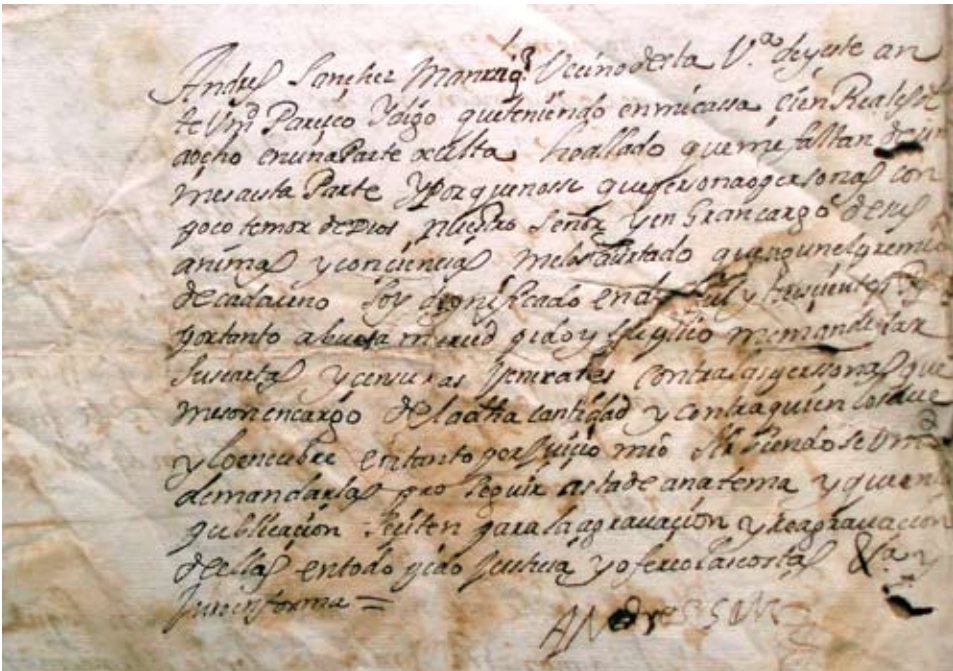 Andres Sanchez Manrriq. Vecino desta V.ª de yeste an
te Vmd Paresco Y digo que teniendo en mi cassa cien Reales de
aocho en una Parte oculta he allado que me faltan de un
mes a esta Parte y por que no sse que persona o personas con
poco temor de Dios nuestro Señor y en Gran cargo de sus
animas y conciencias me los a urtado que
de cada uno soy dignificado en
por tanto a buesa merced pido y suplico me mande dar
sus cartas y censuras Jenerales contra las personas que
me son en cargo de la dha cantidad y contra quien lo saue
y lo encubre en tanto perJuiçio mio siruiendose Vmd
de mandarlas pro seguir asta de anatema y que en
publicacion seçiten para la agrauacion y reagrauacion
de ellas en todo pido Justicia y ofresco las costas &.ª y
Juro en forma =
Andres